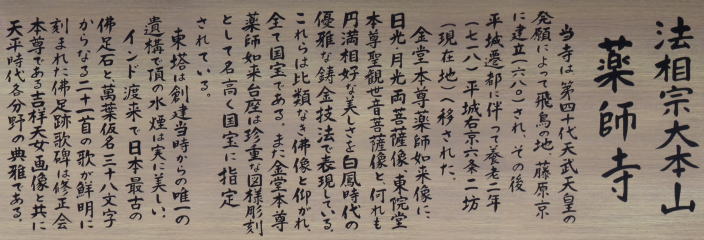 法相宗大本山
薬師寺
当寺は第四十代天武天皇の
発願によって飛鳥の地、藤原京
に建立(六八〇)され、その後
平城遷都に伴って養老二年
(七一八)平城右京六条二坊
(現在地)へ移された。
金堂本尊薬師如来像に、
日光月光両菩薩像、東院堂
本尊聖観世音菩薩像と何れも
円満相好な美しさを白鳳時代の
優雅な鋳金技法で表現している。
これらは比類なき佛像と仰がれ、
全て国宝である。また金堂本尊
薬師如来台座は珍重な図様彫刻
として名高く国宝に指定
されている。
東塔は創建当時からの唯一の
遺構で頂の水煙は実に美しい。
インド渡来で日本最古の
佛足石と萬葉仮名三十八文字
からなる二十一首の歌が鮮明に
刻まれた佛足跡歌碑は修正会
本尊である吉祥天女画像と共に
天平時代各分野の典雅である。